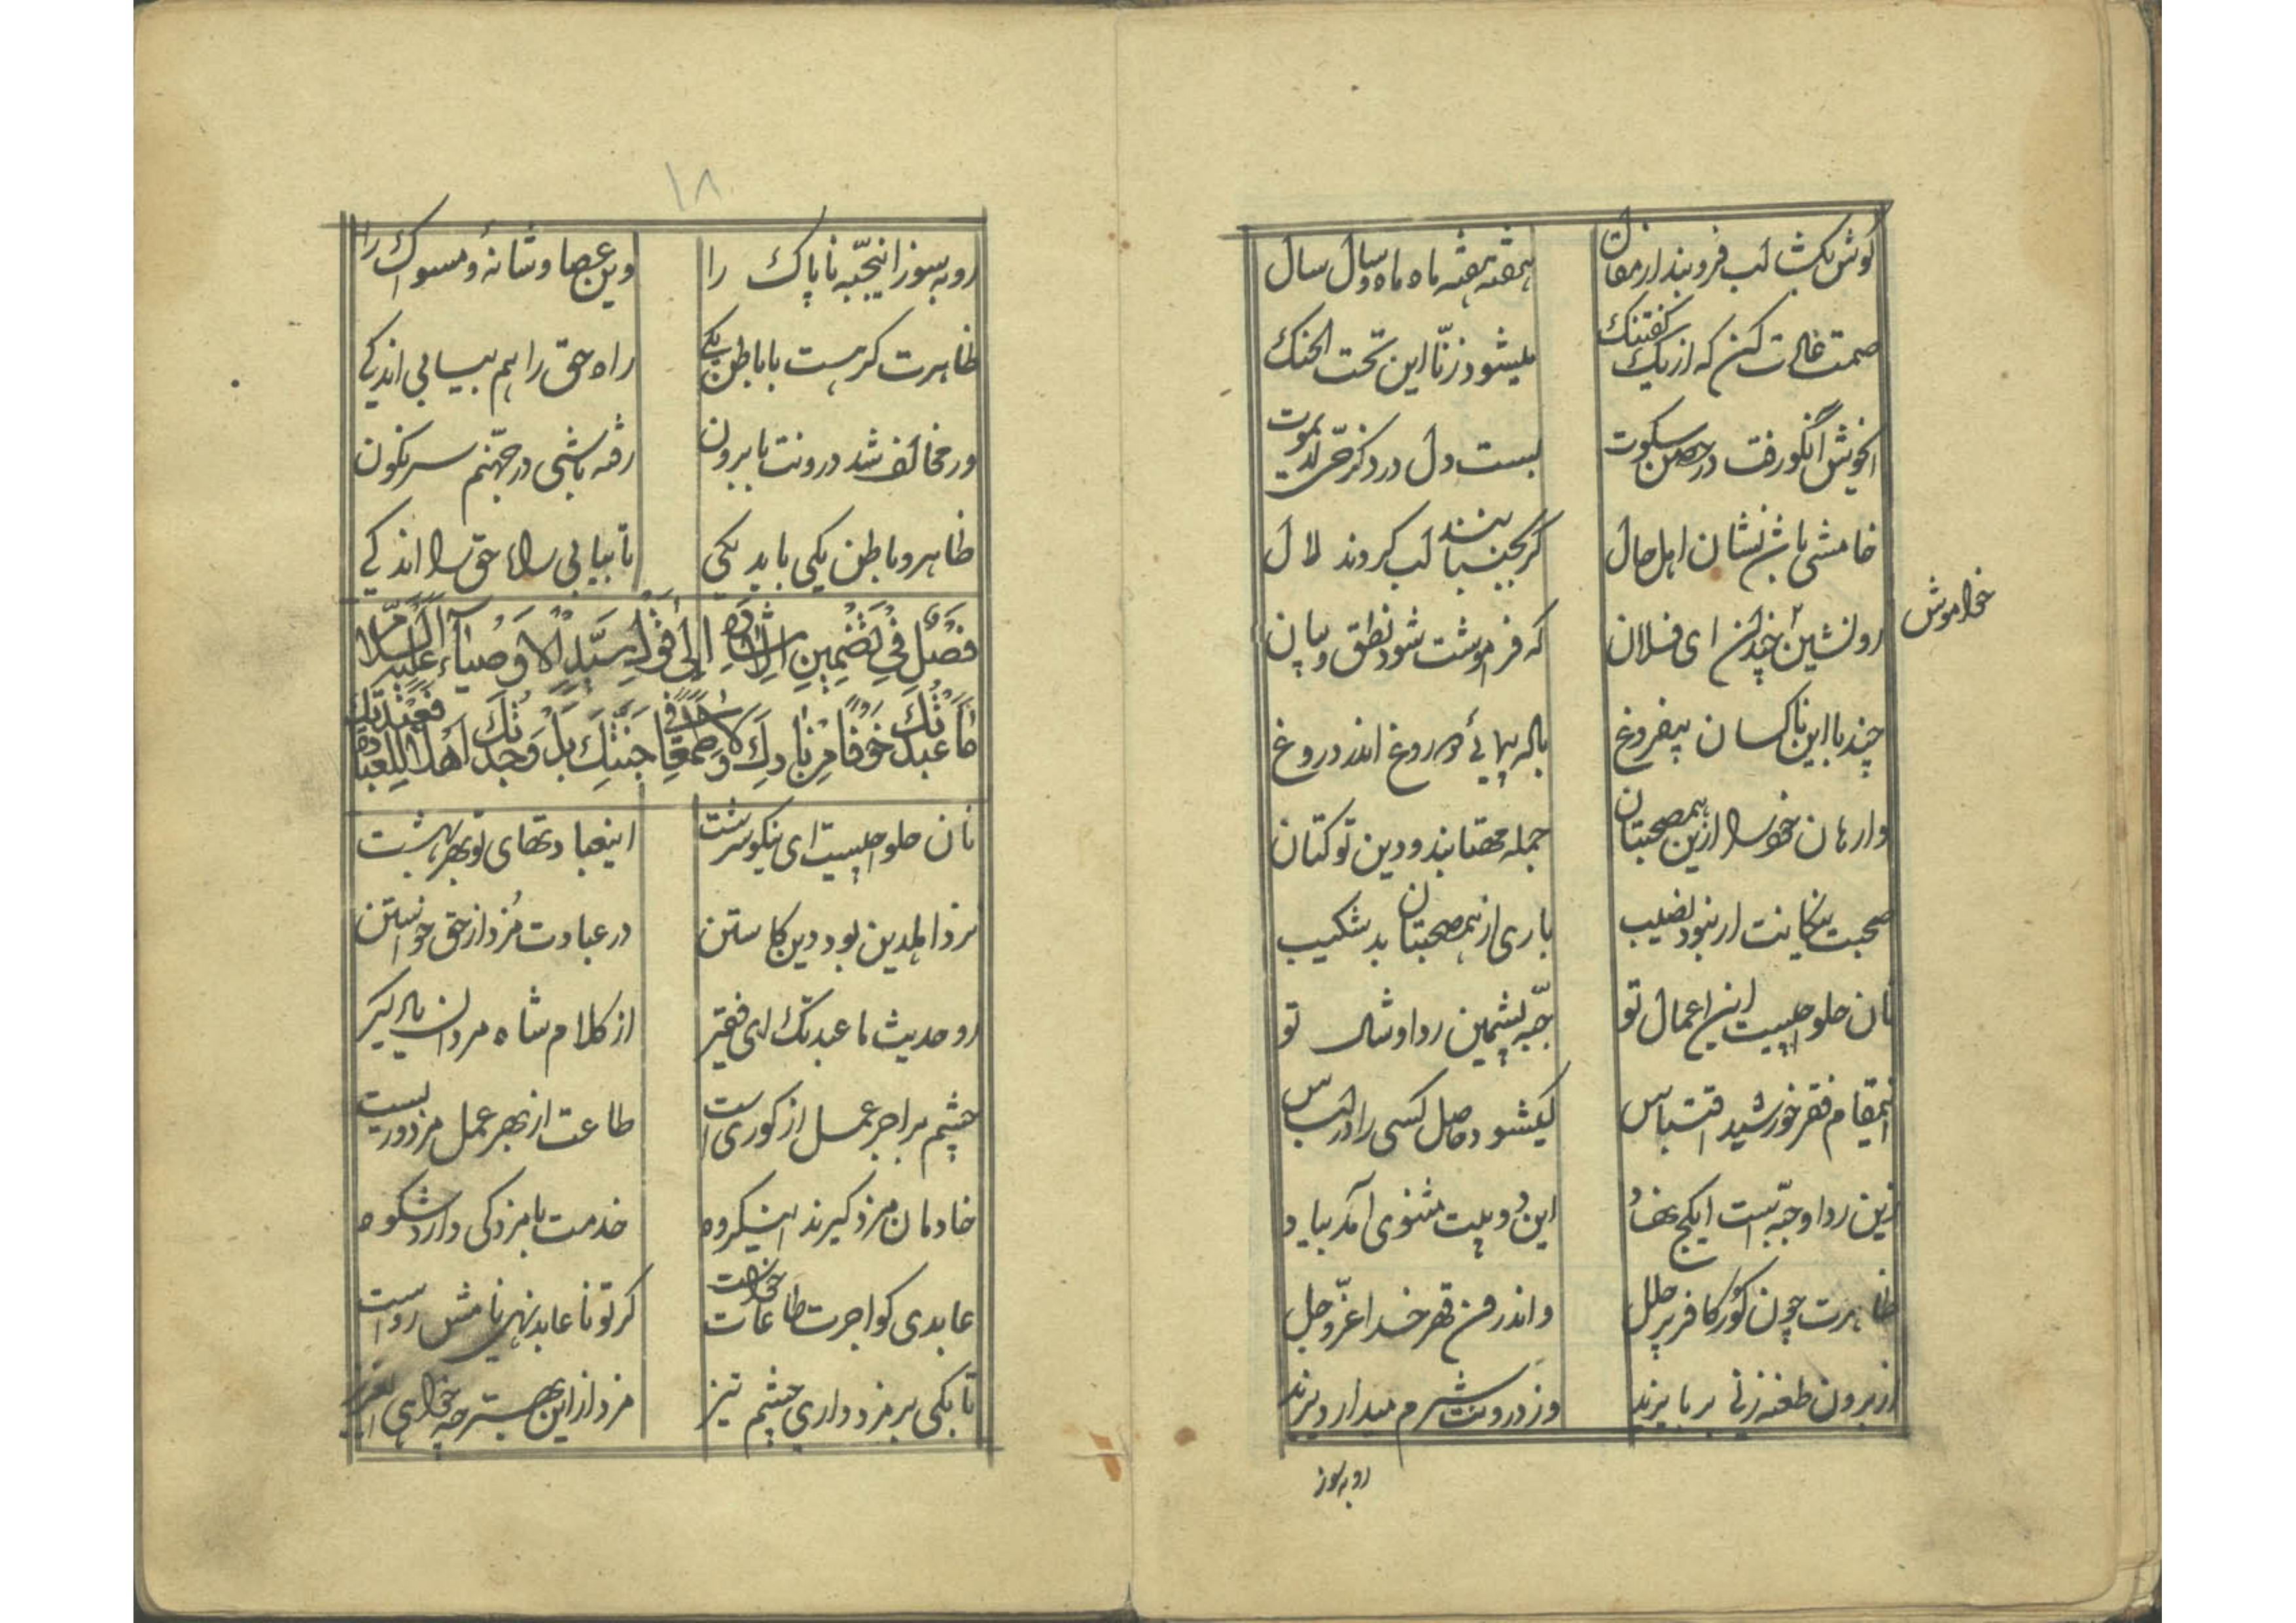 گوش بکشا لب فرو بند از مقال هفته هفته ماه ماه و سال سال
صمت عادت کن که از یک گفتنک میشود زنّار این تحت الحنک
ایخوش آنکو رفت در حصن سکوت بسته دل در ذکر حیّ لا یموت
خامشی باش نشان اهل حال گر بجنبانند لب گردند لال
خاموش
رو نشین چندان ای فلان که فراموشت شود نطق و بیان
چند با این ناکسان بیفروغ باله پیمائی دروغ اندر دروغ
وارهان خود را ازین همصحبتان جمله مهتابند و دین تو کتان
صحبت نیکانت ار نبود نصیب باری از همصحبتان بد شکیب
نان حلوا چیست این اعمال تو جبّه پشمین ردا و شال تو
اینمقام فقر خورشید اقتباس کیشود حاصل کسی را در لباس
زین ردا و جبّه است ای کج نهاد این دو بیت مثنوی آمد بیاد
ظاهرت چون گور کافر پر حلل و اندرون قهر خدا عزّ و جل
از برون طعنه زنی بر بایزید وز درونت شرم میدارد یزید
رو بسوز
۱۸
رو بسوز اینجبّه ناپاک را وین عصا و شانه و مسواک را
ظاهرت گر هست با باطن یکی راه حق را هم بیابی اندکی
ور مخالف شد درونت با برون رفته باشی در جهنّم سرنگون
ظاهر و باطن یکی باید یکی تا بیابی راه حق را اندکی
فَصْلٌ فِي تَضْمِينِ الْاِشَارَةِ اِلَى قَوْلِ سَيِّدِ الْاَوْصِيَاءِ عَلَيْهِ السَّلَامُ
مَا عَبَدْتُكَ خَوْفًا مِنْ نَارِكَ وَلَا طَمَعًا فِي جَنَّتِكَ بَلْ وَجَدْتُكَ اَهْلًا لِلْعِبَادَةِ فَعَبَدْتُكَ
نان حلوا چیست ای نیکو سرشت اینعبادتهای تو بهر بهشت
نزد اهل دین بود دین کاستن در عبادت مُزد از حق خواستن
رو حدیث ما عبدتک ای فقیر از کلام شاه مردان یاد گیر
چشم بر اجر عمل از کوری است طاعت از بهر عمل مزدوریست
خادمان مزد گیرند اینگروه خدمت با مزد کی دارد شکوه
عابدی کو اجرت طاعات خواست گر تو ناعابد نهی نامش رواست
تا بکی بر مزد داری چشم تیز مزد از این بهتر چه خواهی ای عزیز